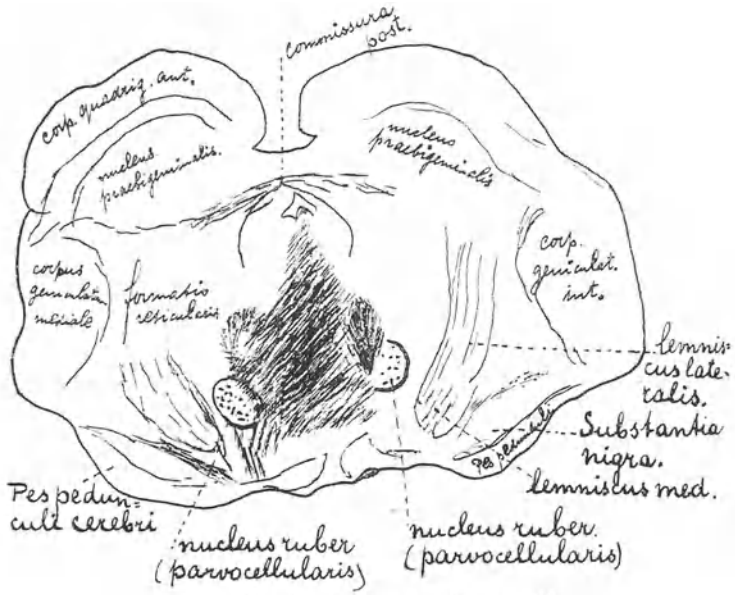 commissura
post.
corp. quadrig. ant.
nucleus
praebigeminalis.
nucleus
praebigeminalis
corpus
geniculatum
mediale
formatio
reticularis
corp.
geniculat.
int.
lemnis-
cus late-
ralis.
Substantia
nigra.
Pes pedunculi
lemniscus med.
Pes pedun-
culi cerebri
nucleus ruber
(parvocellularis)
nucleus ruber.
(parvocellularis)